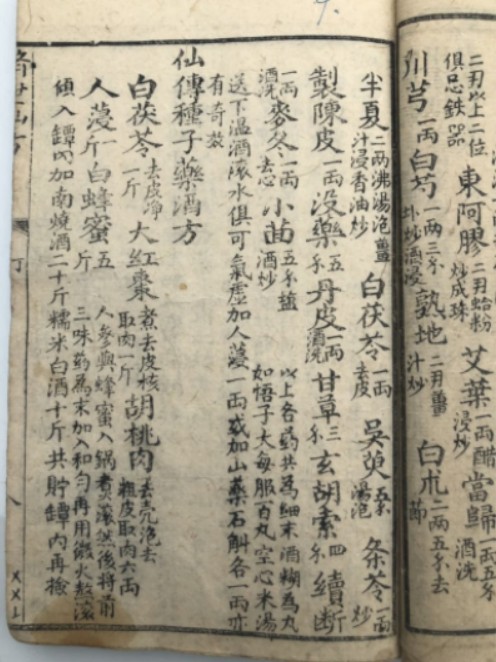 二刄以上二位
俱忌鉄器 東阿膠 二刄蛤粉炒成珠 艾葉一両醋浸炒 當歸酒洗
川芎一両 白芍一両三 酒浸 熟地二刄薑汁炒 白朮二両五 去
半夏二両沸湯泡薑汁浸香油炒 白茯苓一両去皮 吳萸 湯泡 条苓一両炒
製陳皮一両 没藥五 丹皮一両酒洗 甘草三 玄胡索四 續斷
一両酒洗 麥冬一両去心 小茴五 盐酒炒 以上各药共為細末酒糊為丸如梧子大每服百丸空心米湯
送下温酒滚水俱可氣虚加人蓡一両或加山藥石斛各一両亦
有奇效
仙傳種子藥酒方
白茯苓去皮净一斤 大紅棗煮去皮核取肉一斤 胡桃肉去壳泡去粗皮取肉六両
人蓡一斤 白蜂蜜五斤 人參與蜂蜜入鍋煮滚然後将前三味药為末加入和匀再用微火熬滚
傾入罈内加南燒酒二十斤糯米白酒十斤共貯罈内再捡